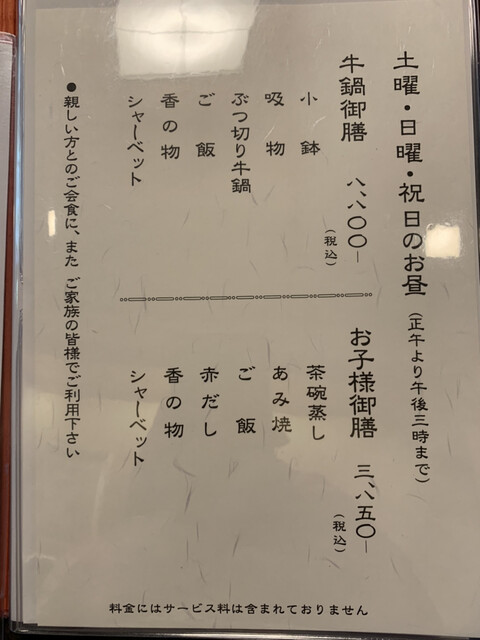 土曜・日曜・祝日のお昼（正午より午後三時まで）
牛鍋御膳　八、八〇〇－
（税込）
小鉢
吸物
ぶつ切り牛鍋
ご飯
香の物
シャーベット
お子様御膳　三、八五〇－
（税込）
茶碗蒸し
あみ焼
ご飯
赤だし
香の物
シャーベット
●親しい方とのご会食に、また ご家族の皆様でご利用下さい
料金にはサービス料は含まれておりません